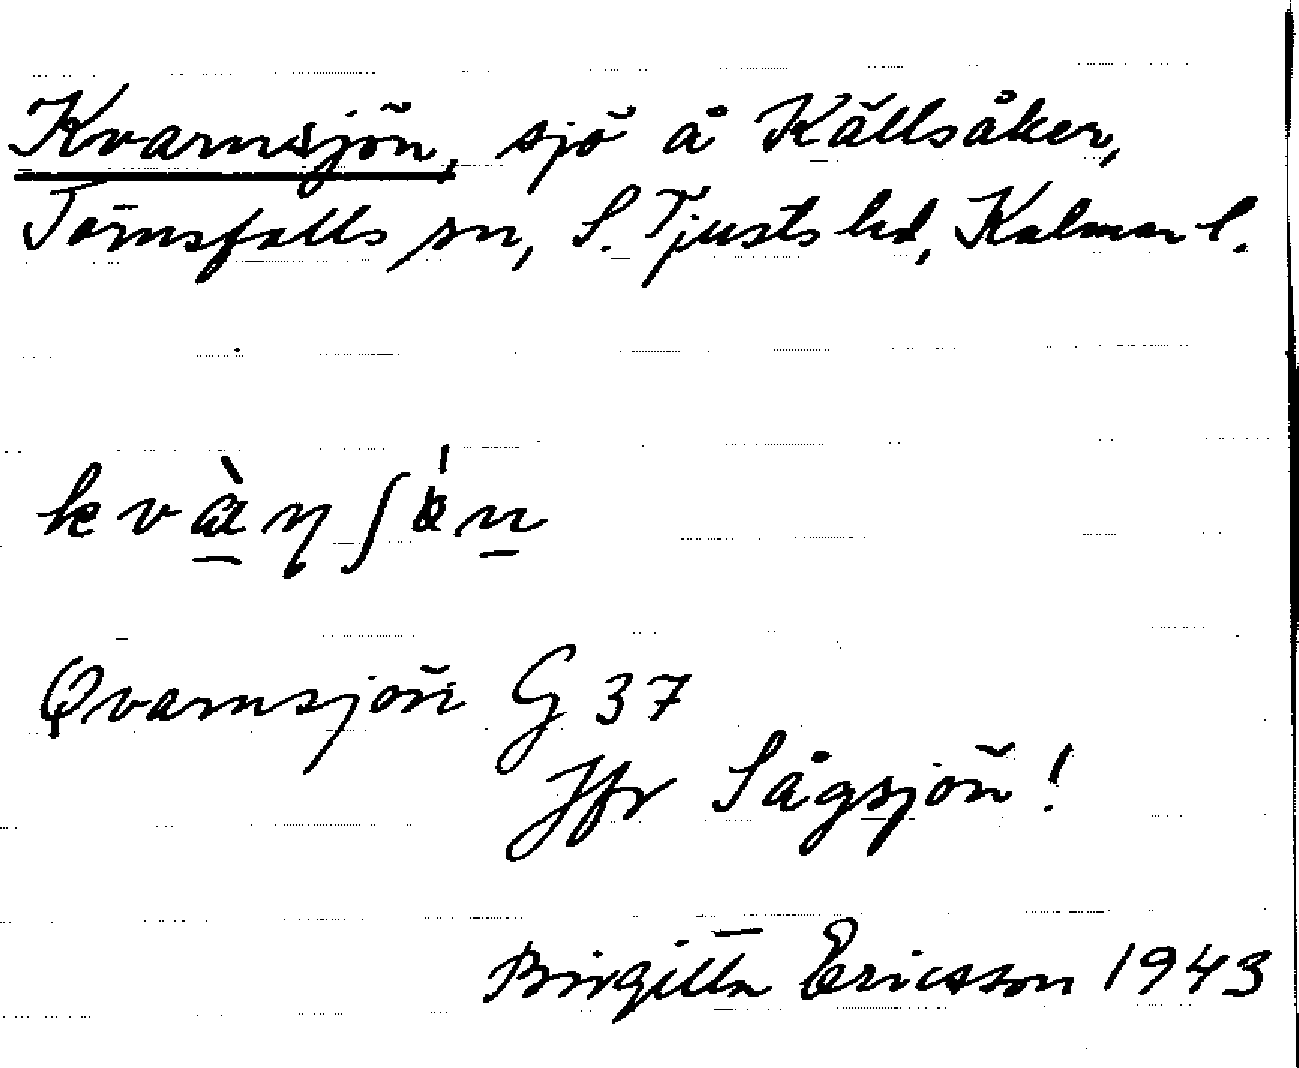 Kvarnsjön, sjö å Källsåker,
Törnsfalls sn, S. Tjusts hd, Kalmar l.
Qvarnsjön G 37
Jfr Sågsjön!
Birgitta Ericsson 1943